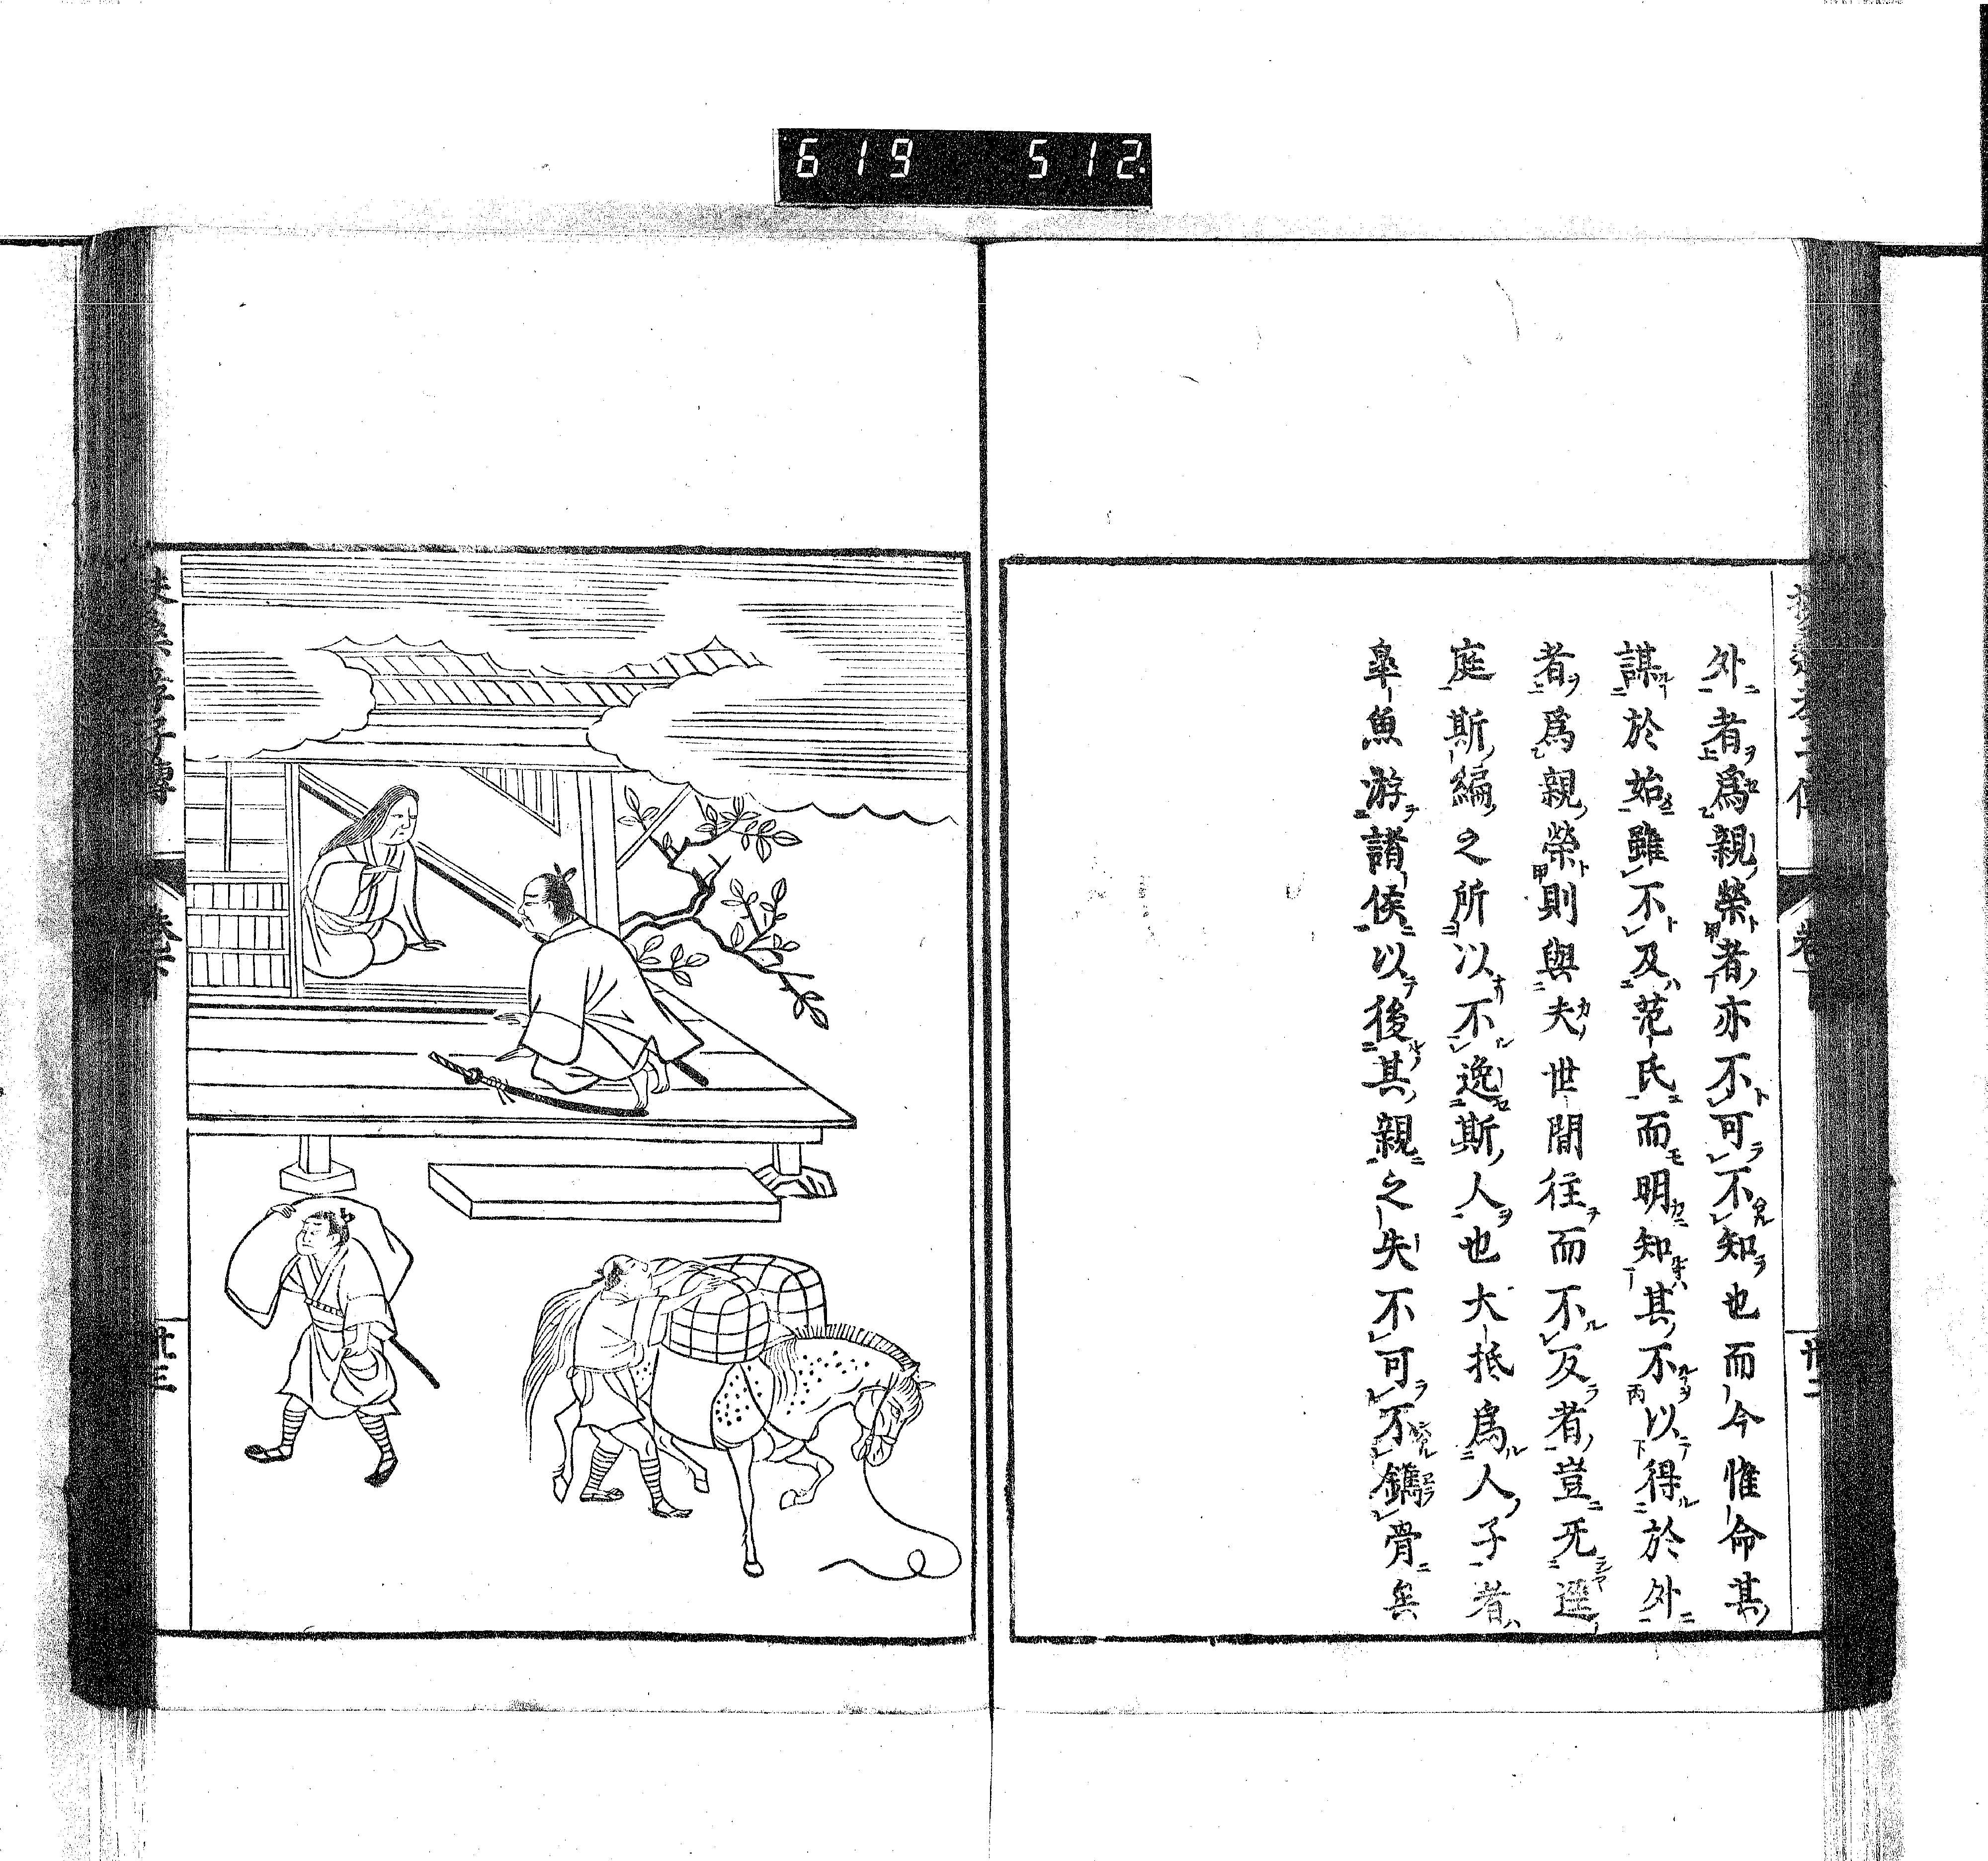 619 512
外者爲親榮者亦不可不知也而今惟命其
謀於始雖不及范氏而明知其不以得於外
者爲親榮則與夫世間徃而不反者豈旡逕
庭斯編之所以不逸斯人也大抵爲人子者
皐魚游諸侯以後其親之失不可不鐫骨矣
卷
卅二
孝子傳
卅三